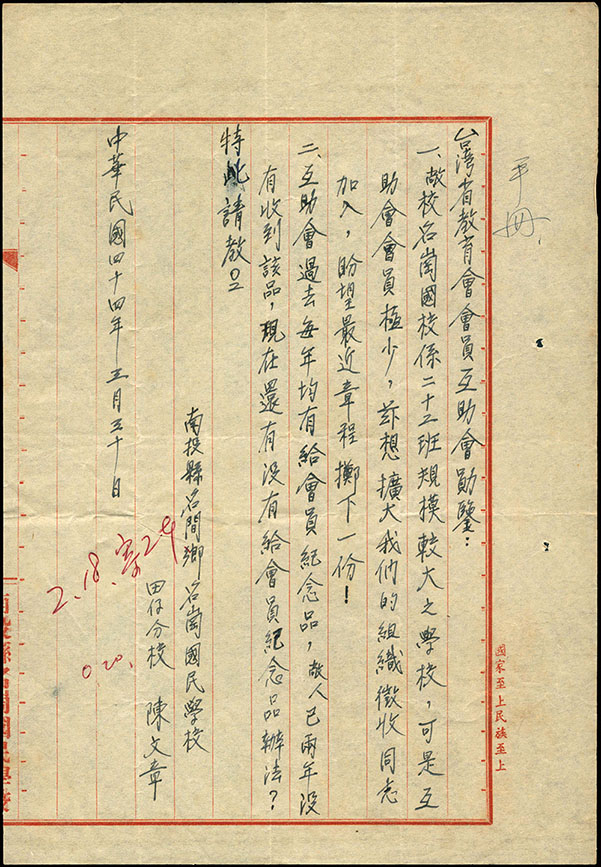 平冊
台灣省教育會會員互助會勛鑒：
一、敝校名崗國校係二十二班規摸較大之學校，可是互
助會會員極少，茲想擴大我們的組織徵收同志
加入，盼望最近章程擲下一份！
二、互助會過去每年均有給會員紀念品，敝人已兩年沒
有收到該品，現在還有沒有給會員紀念品辦法？
特此請教
南投縣名間鄉名崗國民學校
田仔分校 陳文章
中華民國四十四年三月三十日
2.18.
0.20.
國家至上民族至上